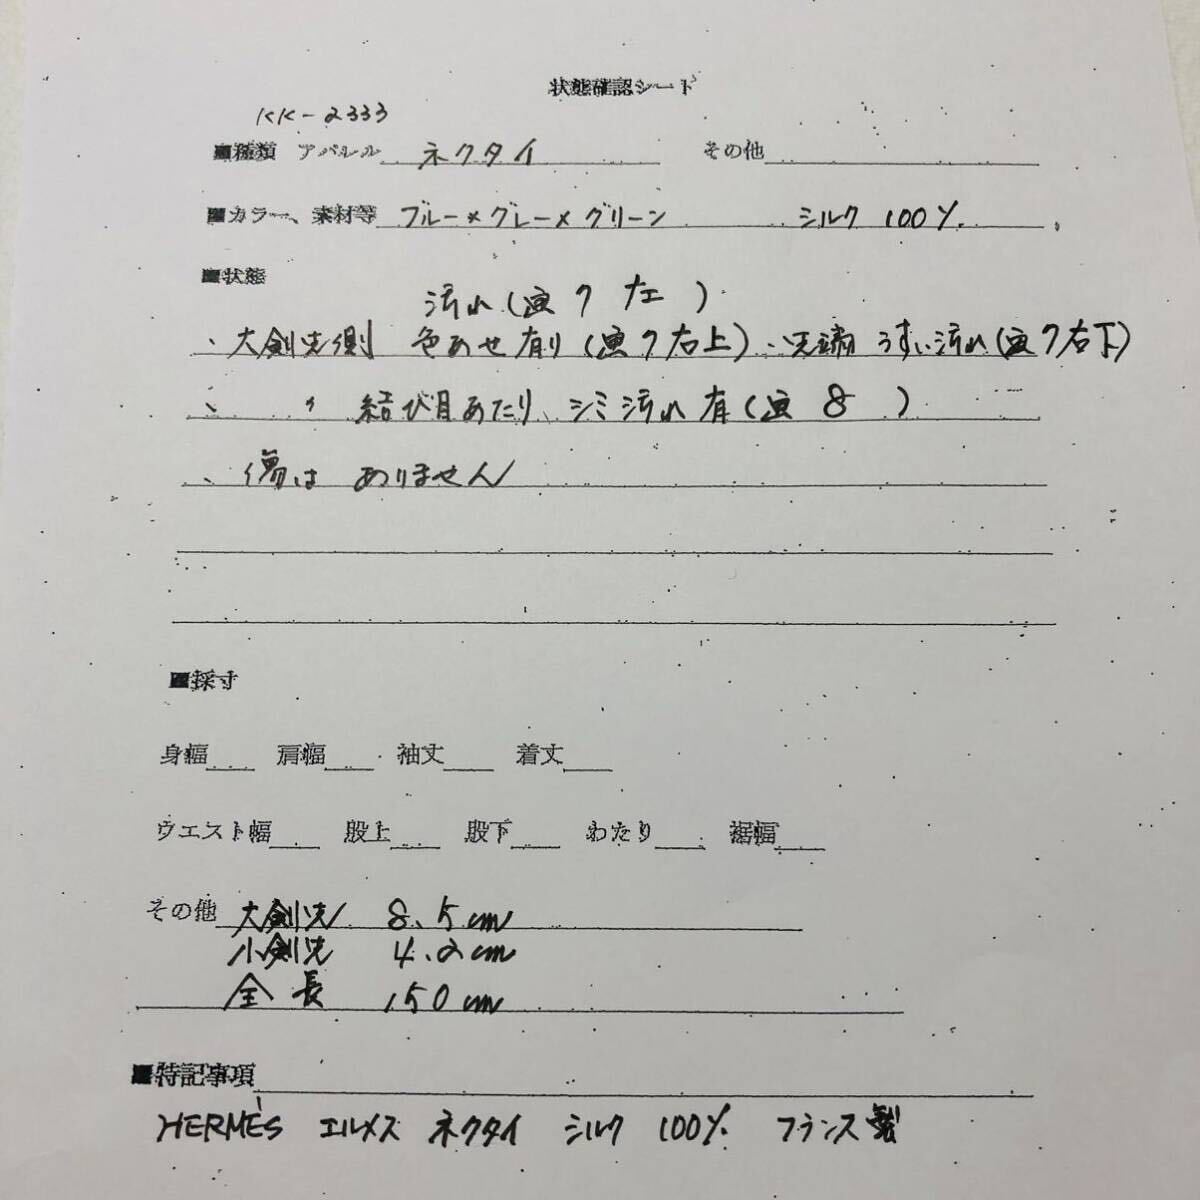 状態確認シート
KK-2333
■種類 アパレル ネクタイ その他
■カラー、素材等 ブルー×グレー×グリーン シルク 100%
■状態
汚れ(画7左)
、大剣先側 色あせ有り(画7右上)、先端 うすい汚れ(画7右下)
、 〃 結び目あたり、シミ汚れ有(画8)
、傷は ありません
■採寸
身幅 肩幅 袖丈 着丈
ウエスト幅 股上 股下 わたり 裾幅
その他 大剣先 8.5cm
小剣先 4.2cm
全長 150cm
■特記事項
HERMÈS エルメス ネクタイ シルク 100% フランス製